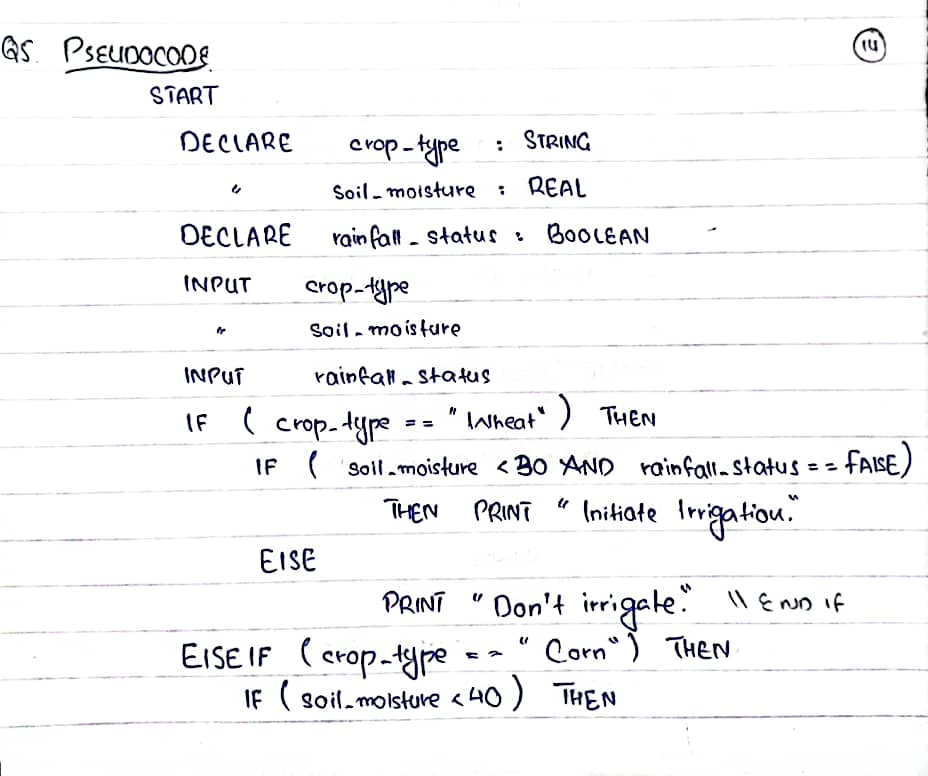 Q5. PSEUDOCODE
14
START
DECLARE crop-type : STRING
" Soil-moisture : REAL
DECLARE rainfall-status : BOOLEAN
INPUT crop-type
" Soil-moisture
INPUT rainfall-status
IF ( crop-type == "Wheat" ) THEN
IF ( soil-moisture <30 AND rainfall-status == FALSE)
THEN PRINT "Initiate Irrigation."
ELSE
PRINT "Don't irrigate." \\ END IF
ELSE IF ( crop-type == "Corn" ) THEN
IF ( soil-moisture <40 ) THEN